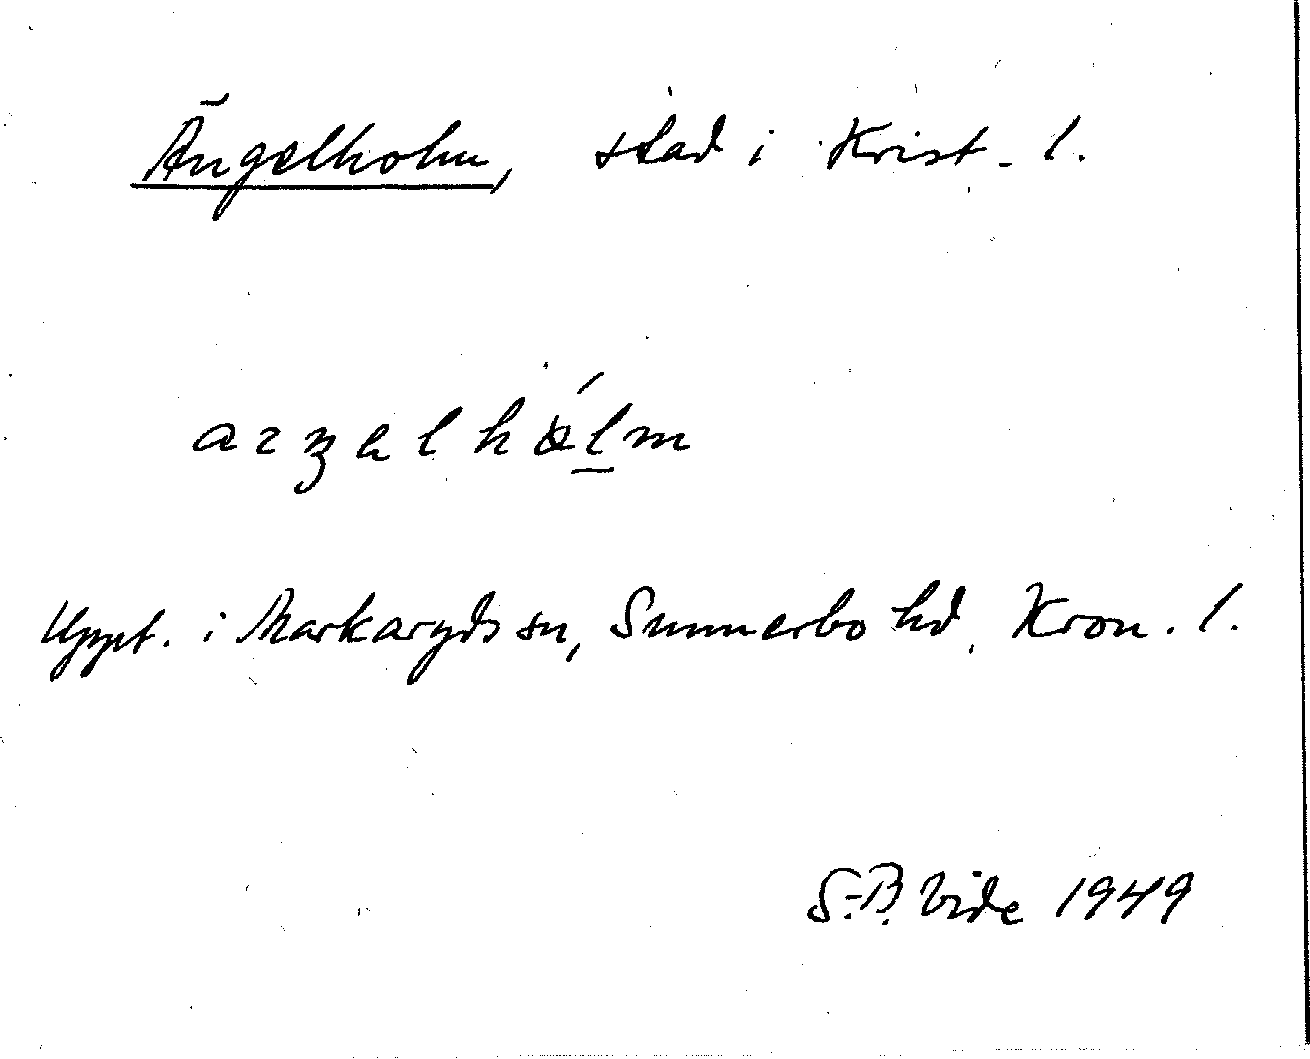 Ängelholm, stad i Krist. l.
Uppt. i Markaryds sn, Sunnerbo hd, Kron. l.
S.-B. Vide 1949